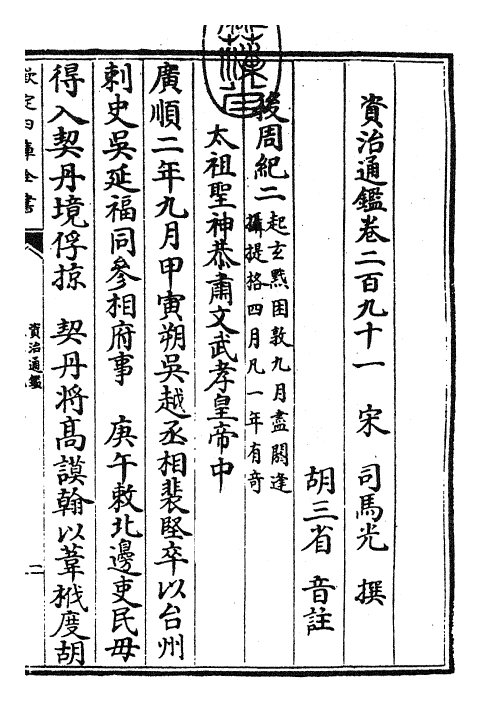 資治通鑑卷二百九十一　宋　司馬光　撰
胡三省　音註
後周紀二
起玄黓困敦九月盡閼逢
攝提格四月凡一年有奇
太祖聖神恭肅文武孝皇帝中
廣順二年九月甲寅朔吳越丞相裴堅卒以台州
刺史吳延福同參相府事　庚午敕北邊吏民毋
得入契丹境俘掠　契丹將高謨翰以葦栰度胡
欽定四庫全書
資治通鑑